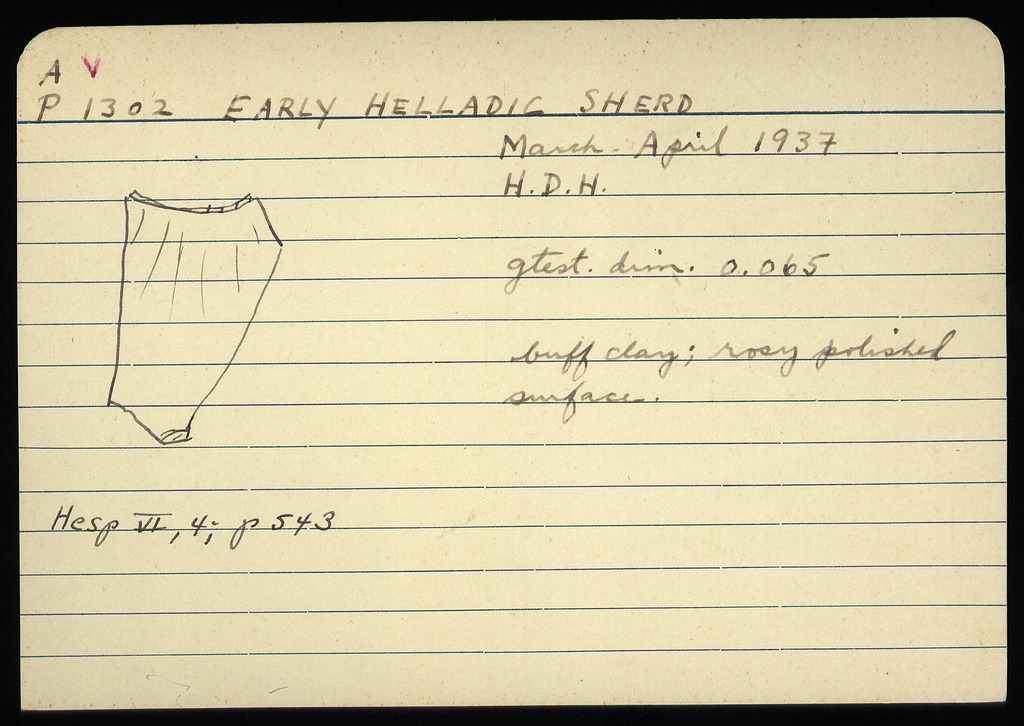 A V
P 1302 EARLY HELLADIC SHERD
March - April 1937
H.D.H.
gtest. dim. 0.065
buff clay; rosy polished
surface.
Hesp VI, 4; p 543